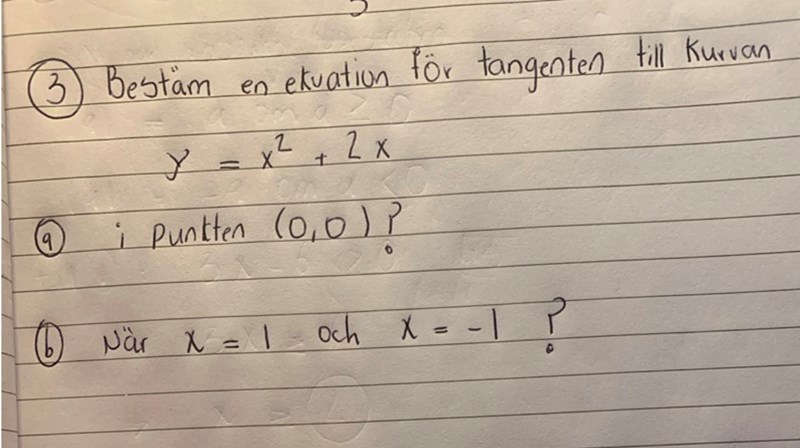 ③ Bestäm en ekvation för tangenten till kurvan
y = x² + 2x
ⓐ i punkten (0,0)?
ⓑ När x = 1 och x = -1 ?